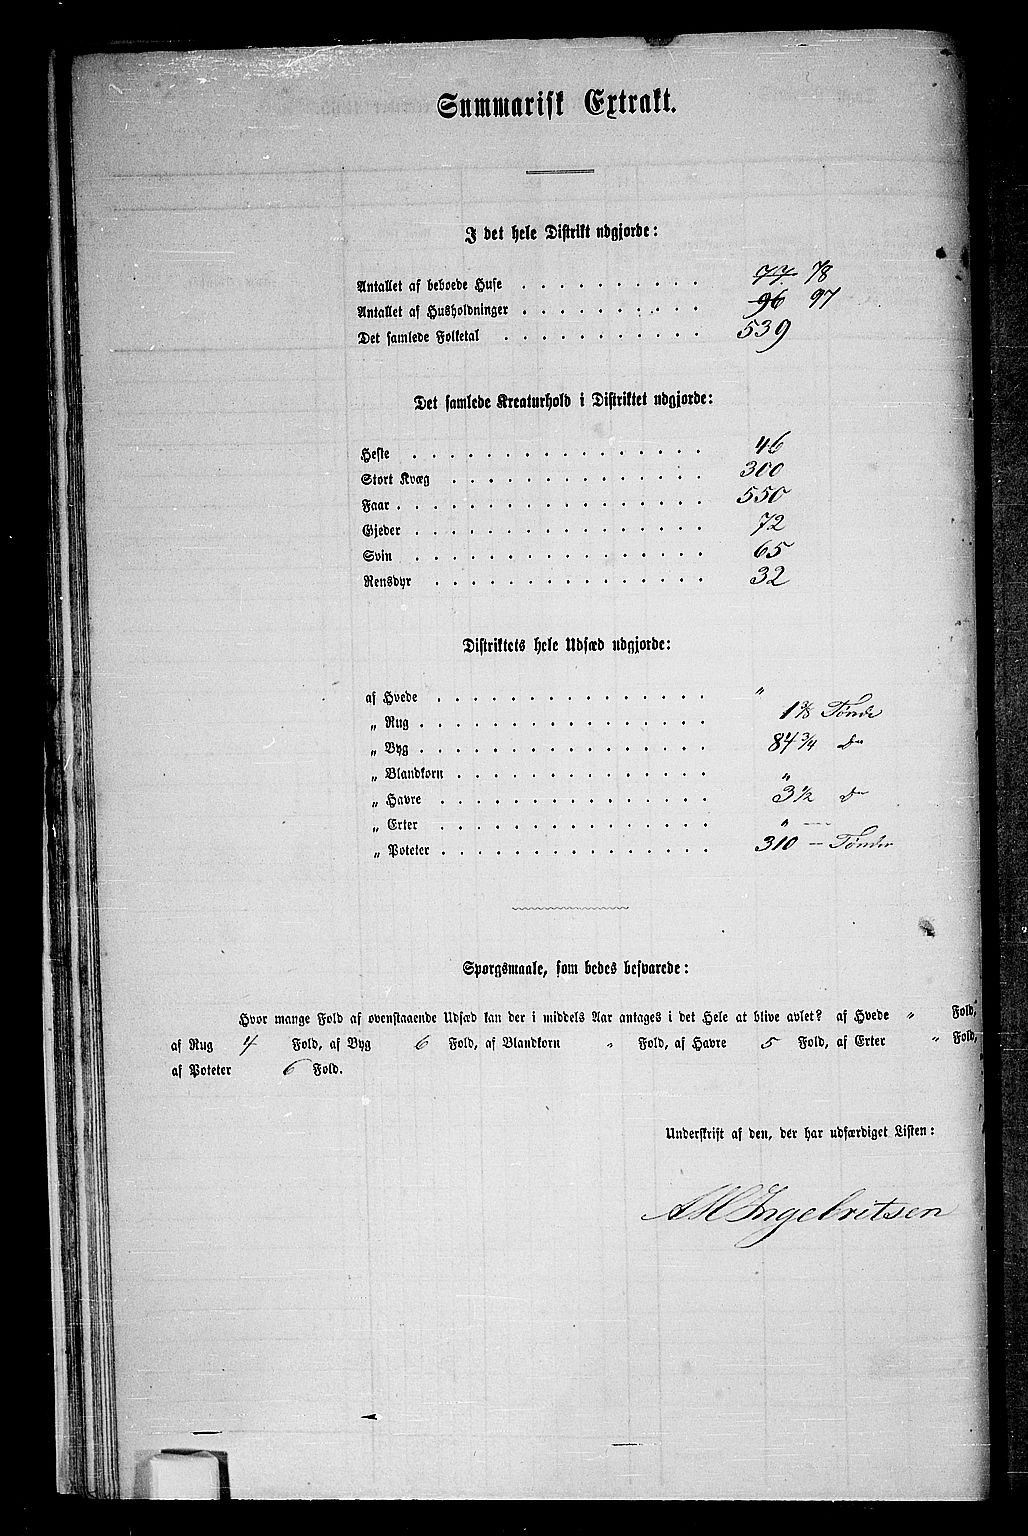 Summarisk Extrakt.
I det hele Distrikt udgjorde:
Antallet af beboede Huse . . . . . . . . . . 77. 78
Antallet af Husholdninger . . . . . . . . . . 96 97
Det samlede Folketal . . . . . . . . . . . 539
Det samlede Kreaturhold i Distriktet udgjorde:
Heste . . . . . . . . . . . . . . . . 46
Stort Kvæg . . . . . . . . . . . . . . 300
Faar . . . . . . . . . . . . . . . . . 550
Gjeder . . . . . . . . . . . . . . . . 72
Svin . . . . . . . . . . . . . . . . 65
Rensdyr . . . . . . . . . . . . . . . 32
Distriktets hele Udsæd udgjorde:
af Hvede . . . . . . . . . . . . . . . "
„ Rug . . . . . . . . . . . . . . . . 1 3/8 Tønde
„ Byg . . . . . . . . . . . . . . . . 84 3/4 Do
„ Blandkorn . . . . . . . . . . . . . . "
„ Havre . . . . . . . . . . . . . . . 3 1/2 Do
„ Erter . . . . . . . . . . . . . . . " —
„ Poteter . . . . . . . . . . . . . . . 310 — Tønder
Spørgsmaale, som bedes besvarede:
Hvor mange Fold af ovenstaaende Udsæd kan der i middels Aar antages i det Hele at blive avlet? af Hvede " Fold,
af Rug 4 Fold, af Byg 6 Fold, af Blandkorn " Fold, af Havre 5 Fold, af Erter " Fold,
af Poteter 6 Fold.
Underskrift af den, der har udfærdiget Listen:
AHIngebritsen